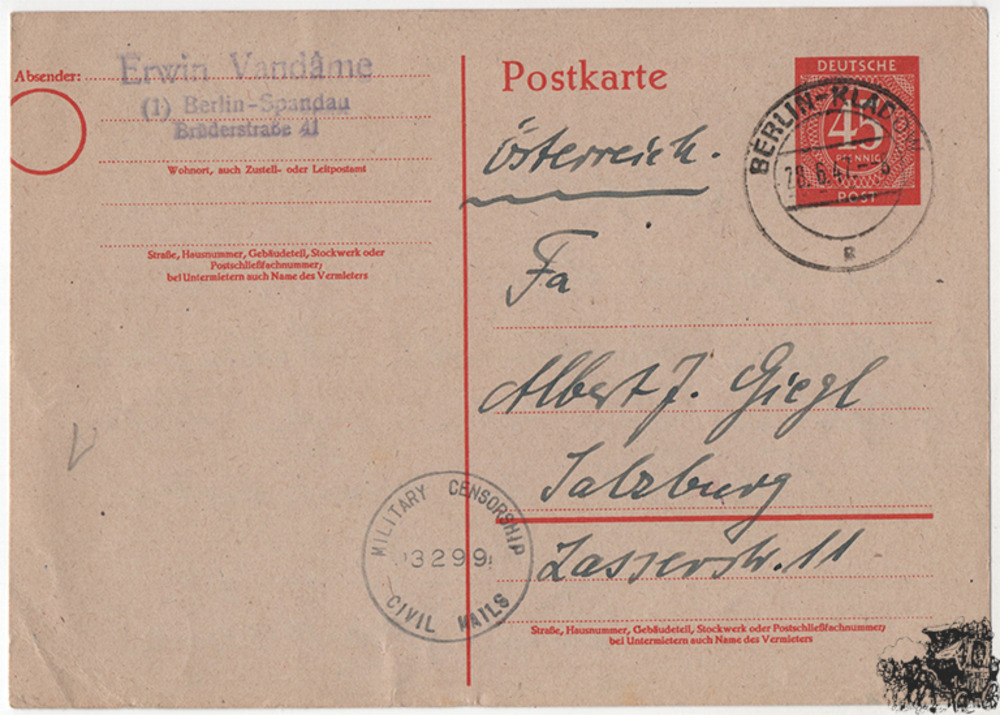 Absender:
Erwin Vandâme
(1) Berlin-Spandau
Brüderstraße 41
Wohnort, auch Zustell- oder Leitpostamt
Straße, Hausnummer, Gebäudeteil, Stockwerk oder
Postschließfachnummer;
bei Untermietern auch Name des Vermieters
Postkarte
DEUTSCHE
45
PFENNIG
POST
BERLIN-KLADOW
28.6.47.
Österreich.
Fa
Albert J. Giegl
Salzburg
Lasserstr. 11
Straße, Hausnummer, Gebäudeteil, Stockwerk oder Postschließfachnummer;
bei Untermietern auch Name des Vermieters
MILITARY CENSORSHIP
3299
CIVIL MAILS